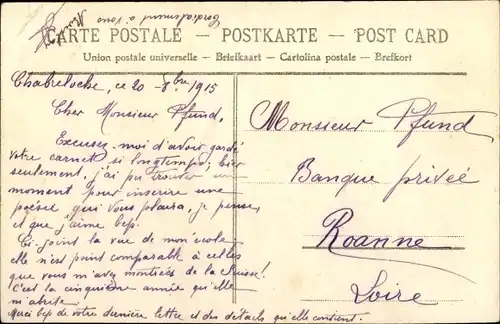 Cordialement à vous
CARTE POSTALE – POSTKARTE – POST CARD
Union postale universelle – Briefkaart – Cartolina postale – Brefkort
Chabreloche, ce 20 - 8bre 1915
Cher Monsieur Pfund,
Excusez-moi d'avoir gardé
votre carnet si longtemps; hier
seulement, j'ai pu trouver un
moment pour inscrire une
poésie qui vous plaira, je pense,
et que j'aime bep.
Ci-joint la vue de mon école
elle n'est point comparable à celles
que vous m'avez montrées de la Suisse!
c'est la cinquième année qu'elle
m'abrite.
Merci bep de votre dernière lettre et des détails qu'elle contient.
Monsieur Pfund
Banque privée
Roanne
Loire